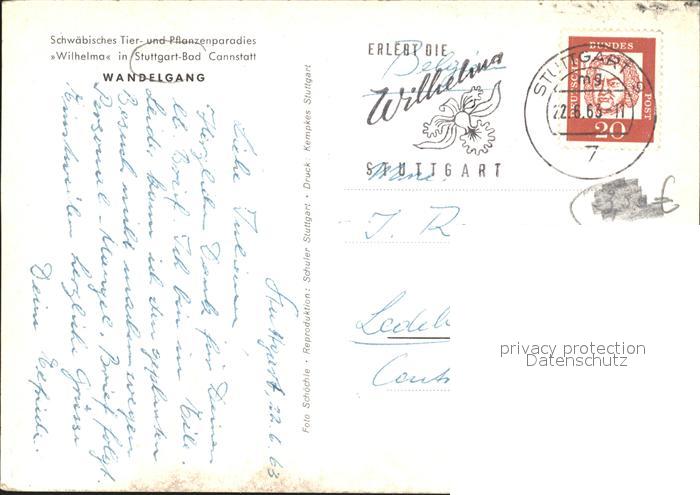 Schwäbisches Tier- und Pflanzenparadies
»Wilhelma« in Stuttgart-Bad Cannstatt
WANDELGANG
Stuttgart, 22.6.63
Liebe
Herzlichen Dank für Deinen
lb. Brief. Ich bin in Eile.
Leider kann ich den geplanten
Besuch nicht machen wegen
Personal-Mangel. Brief folgt.
Einstweilen herzliche Grüsse
Deine
Foto Schöchle · Reproduktion: Schuler Stuttgart · Druck: Kempkes Stuttgart
ERLEBT DIE
Wilhelma
STUTTGART
STUTTGART 5
mg
22.6.63-11
7
DEUTSCHE BUNDESPOST
20
J. R
privacy protection
Datenschutz